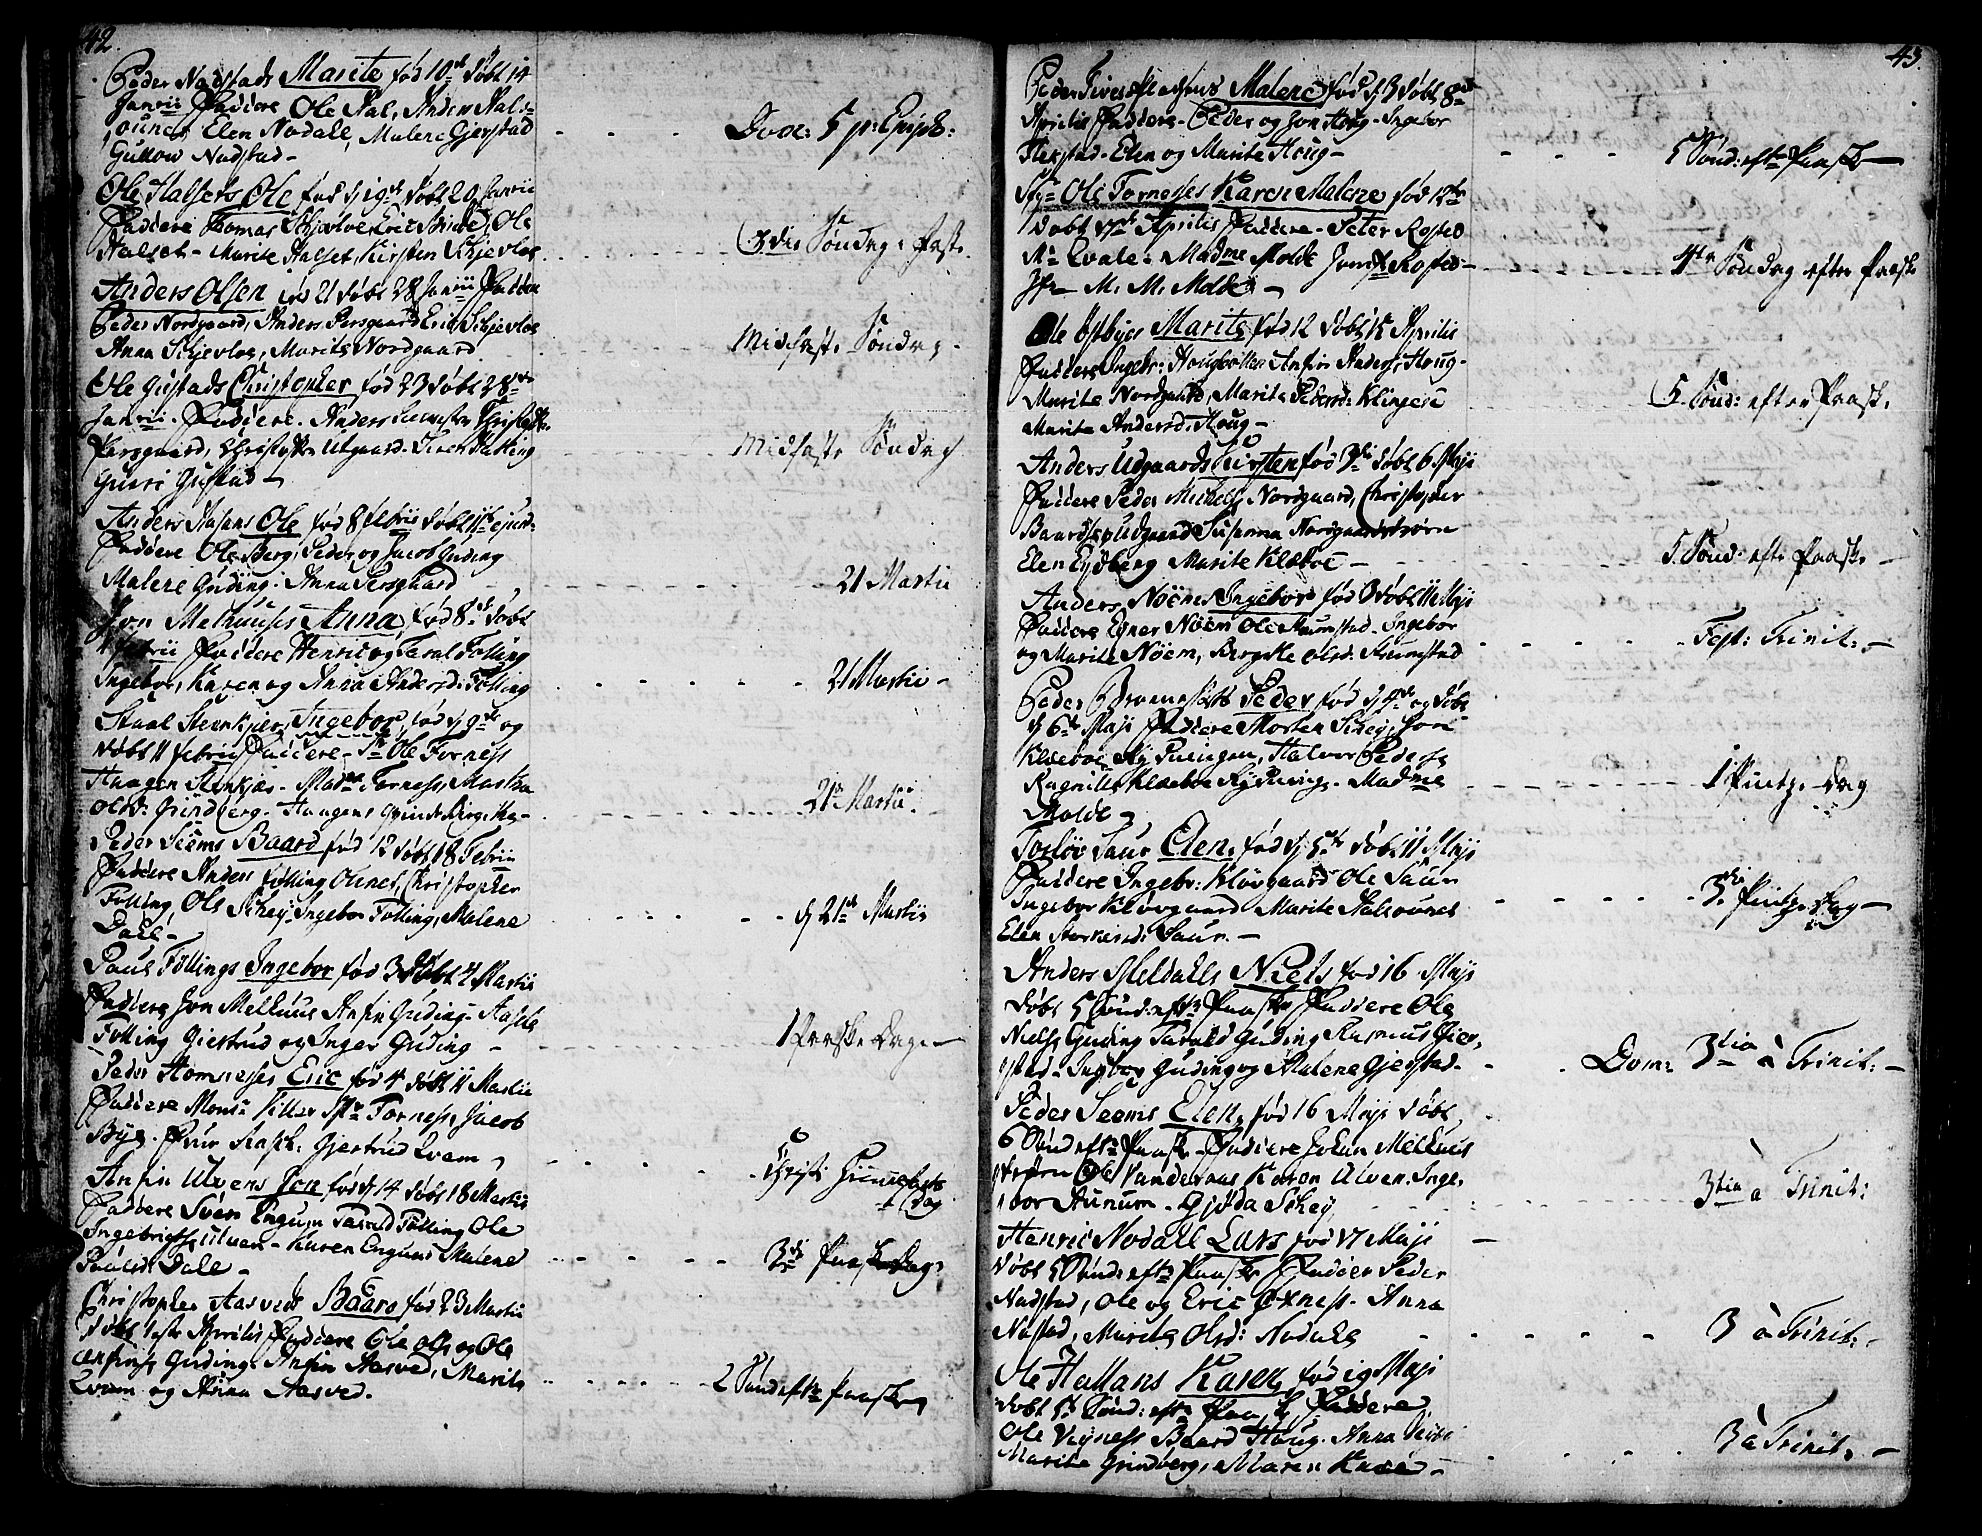 42.
Peder Nadstads Marite fød 10de døbt 14
Janrii Faddere Ole Hal, Anders Hals-
ounes Elen Nodall, Malene Gjerstad
Gullow Nadstad -
Dom: 5 p: Epiph:
Ole Halsets Ole fød d 19de døbt 20 Janrii
Faddere Thomas Schjevloe Eric Ole
Halset - Marite Halset, Kirsten Schjevloe
3die Søndag i Faste
Anders Olsen fød 21 døbt 28 Janrii Faddere
Peder Nordgaard, Anders Persgaard Eric Schjevloe
Anna Schjevloe, Marite Nordgaard
Midfaste Søndag
Ole Gustads Christopher fød 23 døbt 28de
Janrii. Faddere. Anders
Persgaard, Christopher Utgaard. Siren Haking
Guri Gustad -
Midfaste Søndag
Anders Stasens Ole fød 8 febrii døbt 11te ejusd:
Faddere Ole Berg, Peder og Jacob Guding
Malene Guding. Anna Persgaard
21 Martii
Jon Melhuuses Anna, fød 8de døbt
febrii Faddere Henric og Taral Følling
Ingebor, Karen og Anna Andersd: Følling
21 Martii -
Staal Steenkjers Ingebor, fød d 9de og
døbt 11 febrii Faddere - Sr Ole Forness
Haagen Stenkjær - Madme Forness, Martha
Olsd: Grindberg. Haagens Qvinde
21de Martii
Peder Seems Baard fød 12 døbt 18 Febrii
Faddere Anders Følling Christopher
Følling, Ole Schey, Ingebor Følling, Malene
Dahl -
d 21de Martii
Paul Føllings Ingebor fød 3 døbt 4 Martii
Faddere Jon Melhuus Anfin Guding. Aasele
Følling Giertrud og Inger Guding -
1 Paaske Dag. -
Peder Homnesses Eric fød 4 døbt 11 Martii
Faddere Monsr Forness, Jacob
Bye. Gjertrud Qvam
Christi Himmelfarts
Dag
Anfin Ulvens Jon fød d 14 døbt 18 Martii
Faddere Sven Engum Tarald Følling Ole
Ingebrigtsen Ulven - Karen Engum Malene
Paulsd: Dale -
3de Paaske Dag.
Christopher Aasveds Baard fød 23 Martii
døbt 1ste Aprilis, Faddere Ole Ols og Ole
Anfins Guding. Anfin Aasved, Marite
Qvam og Anna Aasved.
2 Sønd eft Paaske
43.
Peder Malene fød d 3 døbt 8de
Aprilis Faddere - Peder og Jon Houg - Ingebor
Hegstad. Elen og Marite Houg -
5 Sønd: eft Paaske -
Sr Ole Fornesses Karen Malene fød 12te
døbt 17de Aprilis Faddere - Peter Rosted
Mr Qvale - Madme Molde Jomf: Rosted -
Jfr M. M. Molde -
4te Søndag efter Paaske
Ole Østbyes Marite fød 12 døbt 15 Aprilis
Faddere Ingebr: Anfin Anders: Houg -
Marite Nordgaard, Marite Pedersd: Klingen
Marite Andersd: Houg -
5. Sønd: efter Paask.
Anders Udgaards Kirsten fød 3de døbt 6 Maji
Faddere Peder Michels Nordgaard, Christopher
Baards: Udgaard Susanna Nordgaard
Elen Eydberg Marite Klæboe -
5. Sønd: eft Paaske -
Anders Nøems Ingebor fød 3 døbt 11 Maji
Faddere Egner Nøem Ole - Ingebor
og Marite Nøem, Olsd:
Fest: Trinit: -
Peder Peder fød d 4de og døbt
d 6te Maji Faddere Morten Schey, Jon
Klæboe Halvor Peders
Ragnild Klæboe - Madme
Molde
1 Pintz. Dag
Torløv Saur Elen, fød d 5te døbt 11 Maji
Faddere Ingebr: Kløvgaard Ole Saur
Ingebor Kløvgaard Marite Halsounes
Elen Saur. -
3die Pintze Dag -
Anders Meldalls Niels fød 16 Maji
døbt 5 Sønd: eft Paaske Faddere Ole
Niels Guding Tarald Guding Rasmus Gjer-
stad - Ingebor Guding og Malene Gjerstad -
Dom: 3tia à Trinit: -
Peder Seems Elen, fød 16 Maji døbt
6 Sønd eft Paaske - Faddere Johan Melhuus
Ole Vandernas Karen Ulven. Inge-
bor Aunum. Gjøda Schey
3tia à Trinit:
Henric Nodall Lars fød 17 Maji -
døbt 5 Sønd: eft Paaske Faddere Peder
Nadstad, Ole og Eric Øxness - Anna
Nastad, Marite Olsd: Nodall
3 à Trinit: -
Ole Hallans Karen fød 19 Maji
døbt 5te Sønd: eft Paask. Faddere
Ole Vigness Baard Houg - Anna
Marite Grindberg, Maren Knæe -
3 à Trinit: -